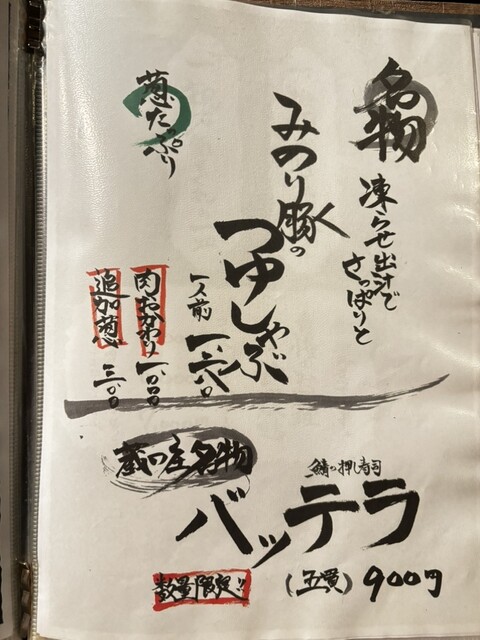 名物
凍らせ出汁で
さっぱりと
みのり豚の
つゆしゃぶ
一人前 一、六八〇
葱たっぷり
肉おかわり 一、〇〇〇
追加葱 三〇〇
蔵の庄名物
鯖の押し寿司
バッテラ
(五貫) 900円
数量限定!!